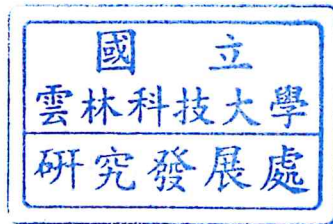 國立
雲林科技大學
研究發展處